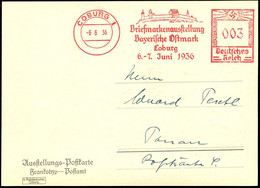 COBURG 1
-6.6.36
Briefmarkenausstellung
Bayerische Ostmark
Coburg
6.-7. Juni 1936
003
Deutsches
Reich
Herrn
Eduard
Ausstellungs-Postkarte
Frankotyp-Postamt